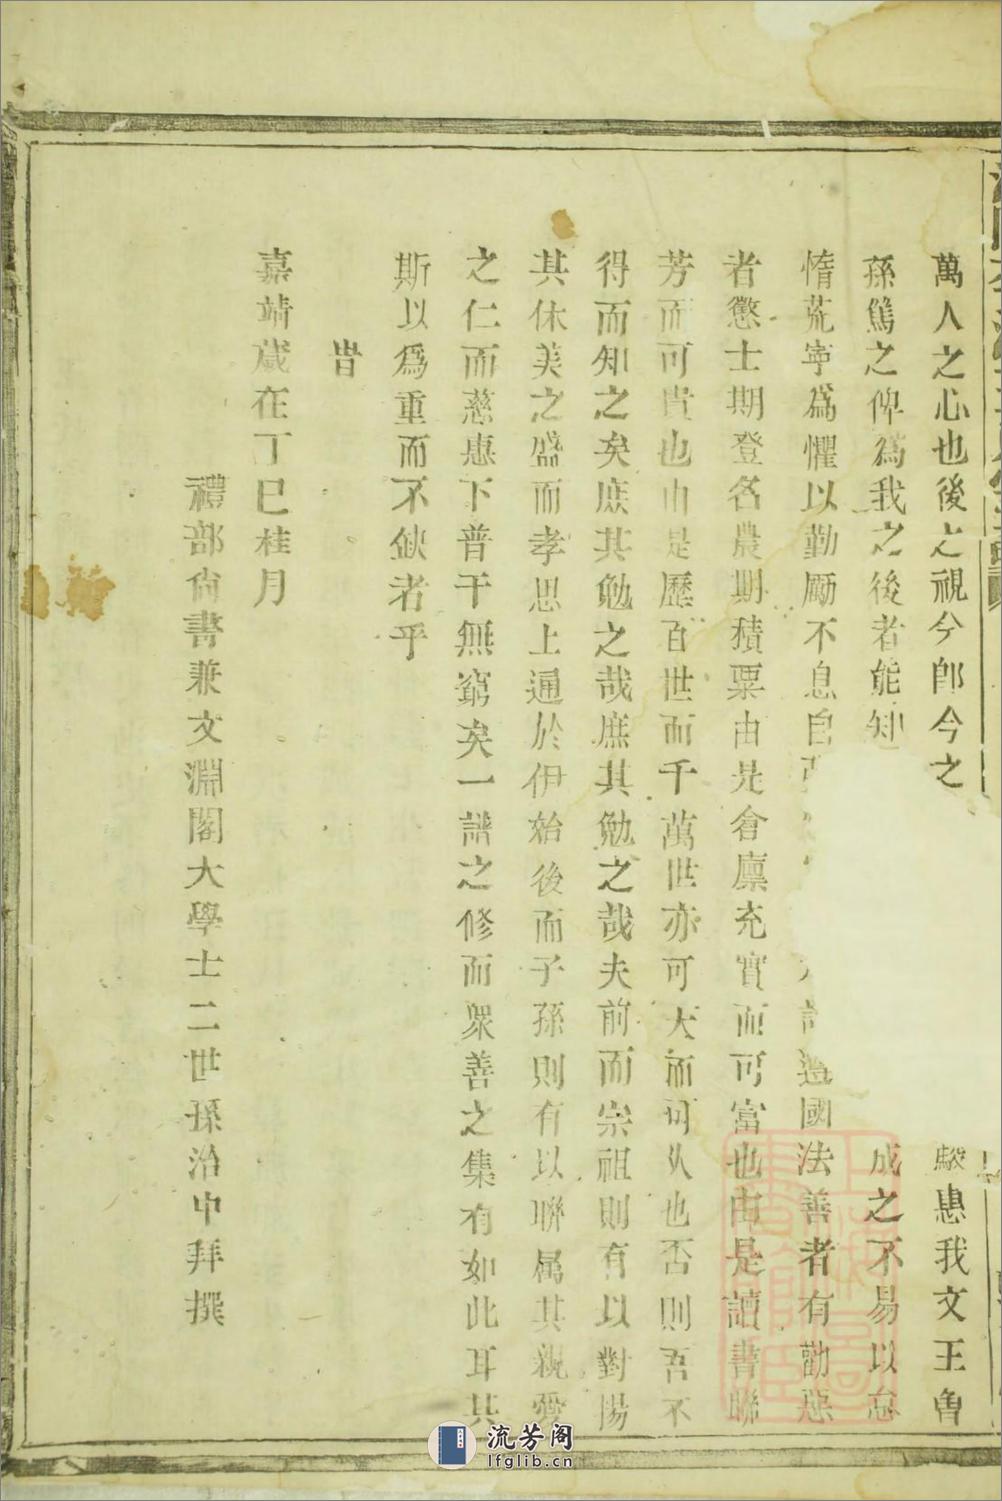 萬人之心也後之視今卽今之
駿惠我文王魯
孫篤之俾爲我之後者能知
成之不易以怠
惰荒寧爲懼以勤勵不息自
國法善者有勸惡
者懲士期登名農期積粟由是倉廩充實而可富也由是讀書聯
芳而可貴也由是歷百世而千萬世亦可大而可久也否則吾不
得而知之矣庶其勉之哉庶其勉之哉夫前而宗祖則有以對揚
其休美之盛而孝思上通於伊始後而子孫則有以聯属其親愛
之仁而慈惠下普于無窮矣一譜之修而衆善之集有如此耳其
斯以爲重而不缺者乎
旹
嘉靖歲在丁巳桂月
禮部尙書兼文淵閣大學士二世孫治中拜撰
流芳阁
lfglib.cn